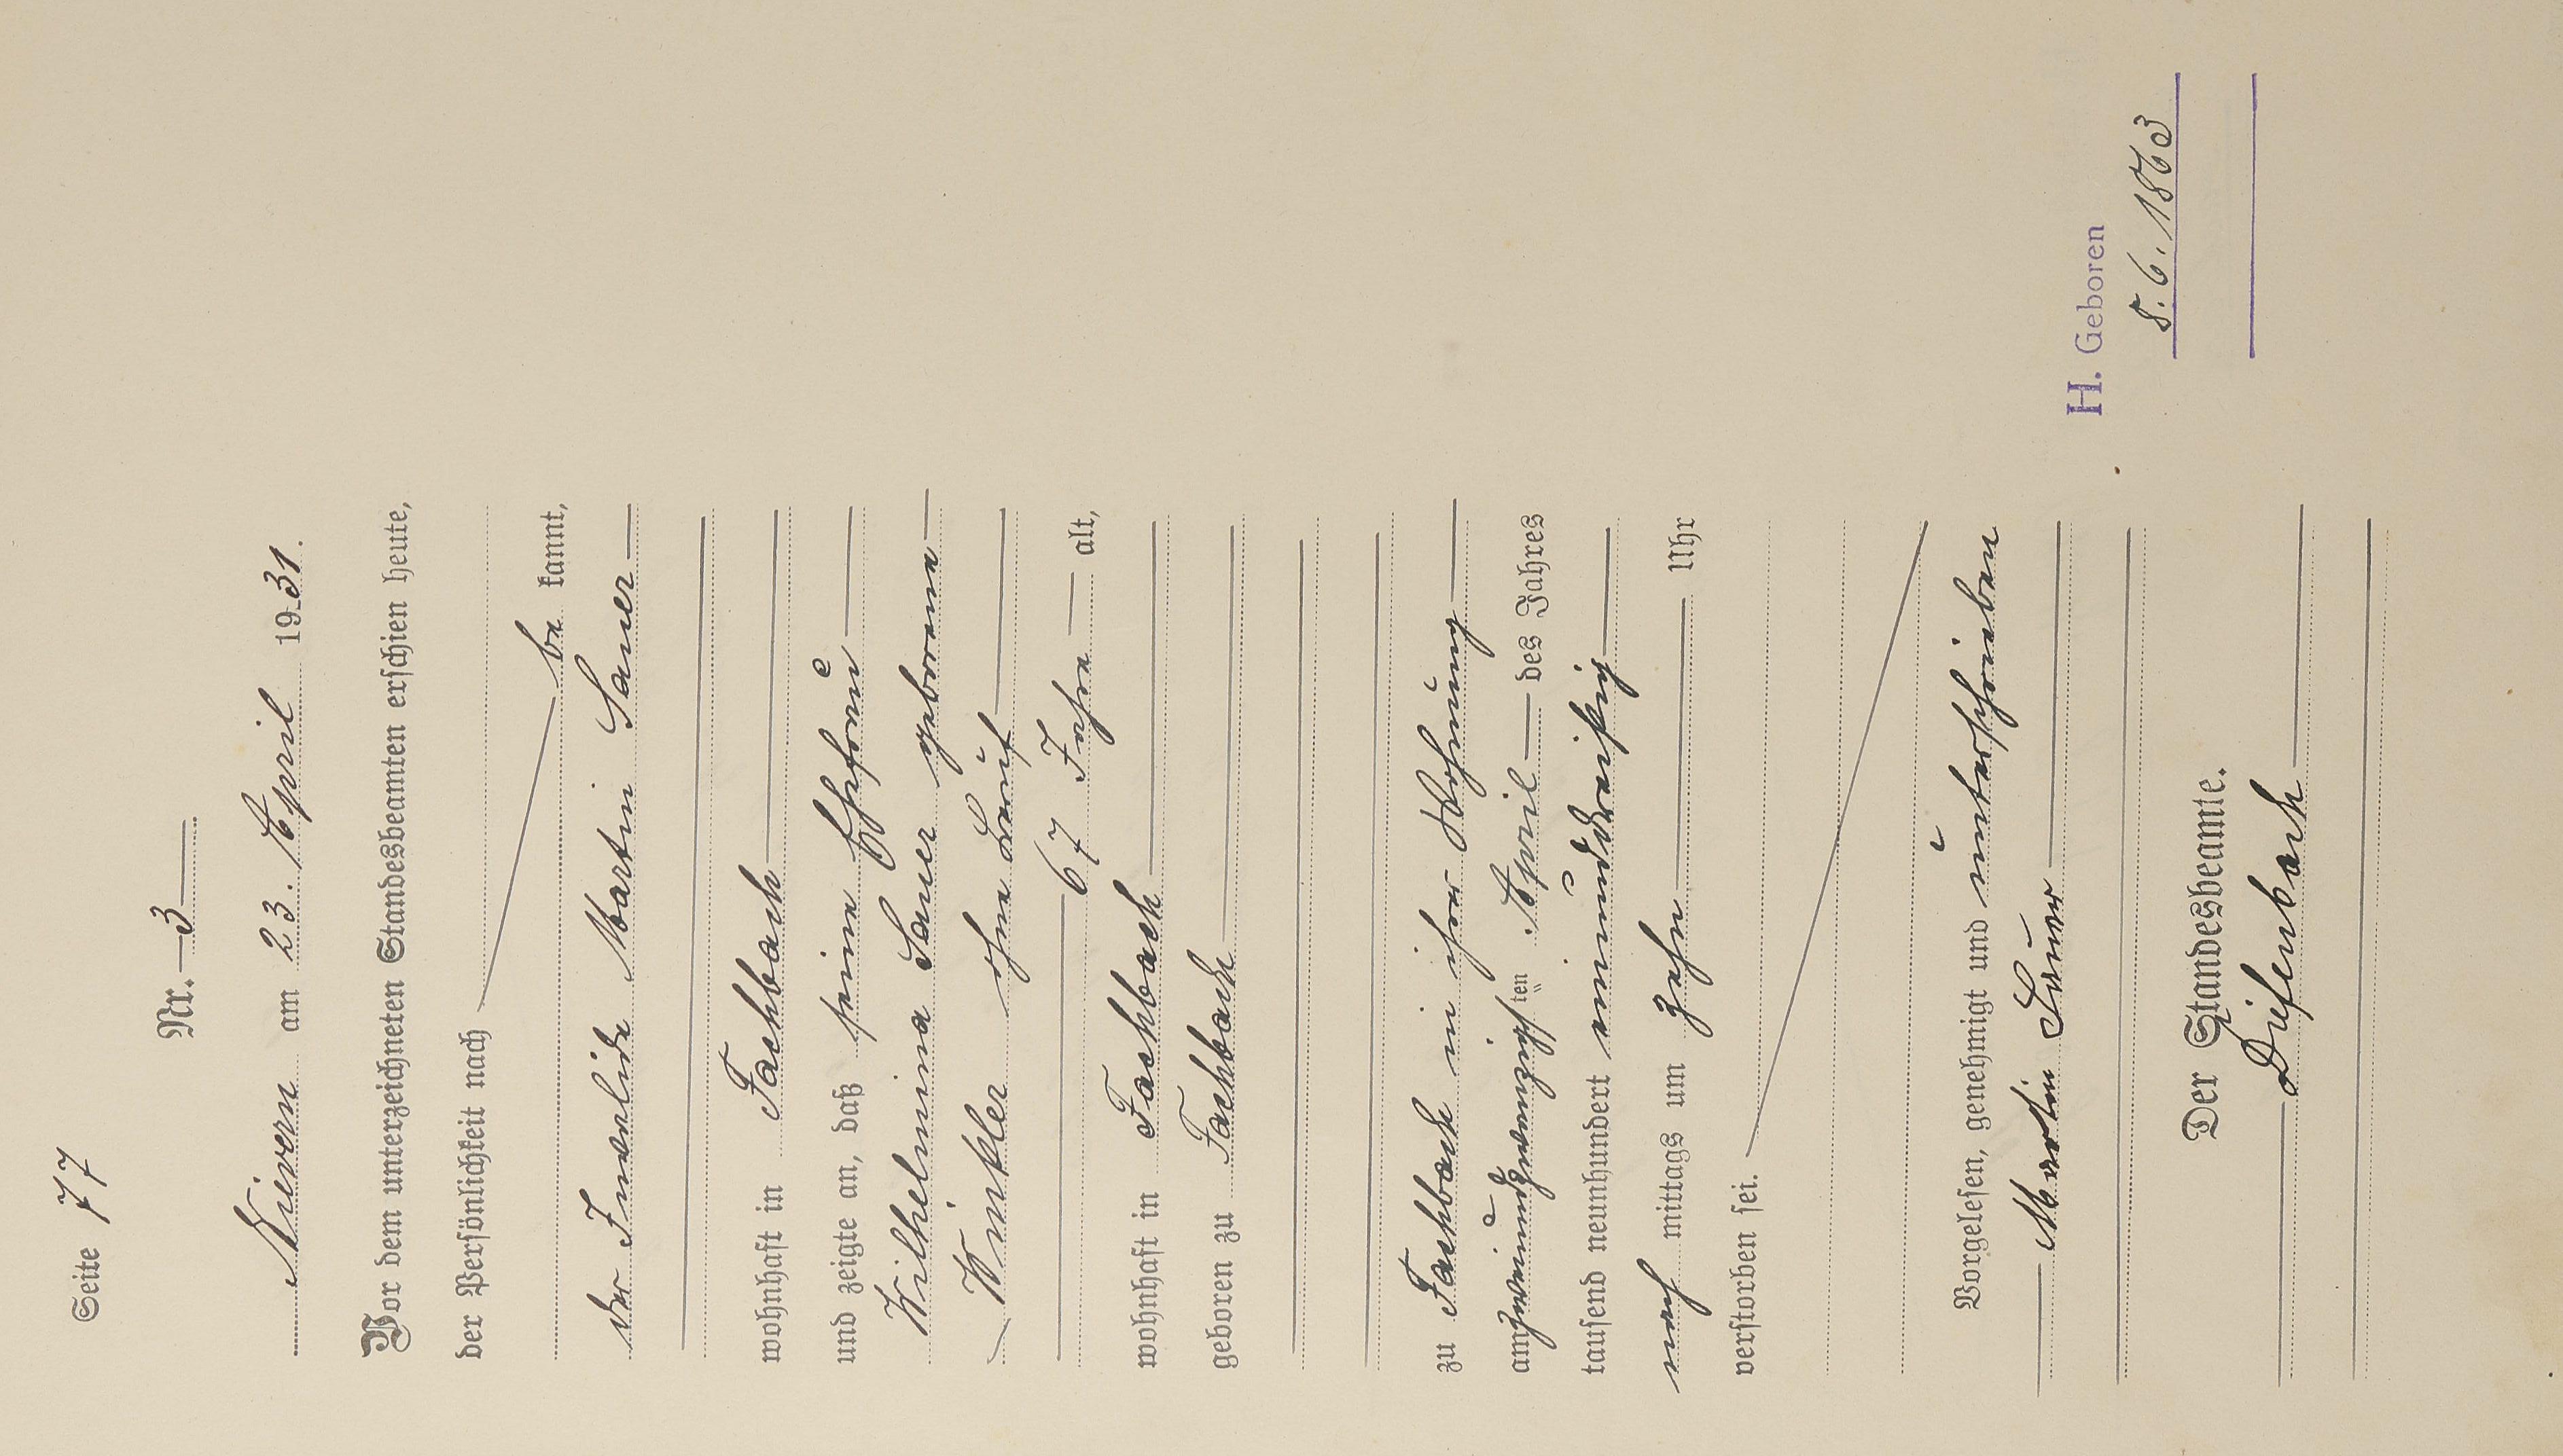 Seite 77
Nr. 3
Nievern am 23. April 1931.
Vor dem unterzeichneten Standesbeamten erschien heute,
der Persönlichkeit nach
be kannt,
der Invalide Martin Sauer
wohnhaft in Fachbach
und zeigte an, daß seine Ehefrau
Wilhelmina Sauer geborene
Winkler ohne Beruf
67 Jahre alt,
wohnhaft in Fachbach
geboren zu Fachbach
zu Fachbach in ihrer Wohnung
am zweiundzwanzigsten April des Jahres
tausend neunhundert einunddreißig
nach mittags um zehn Uhr
verstorben sei.
Vorgelesen, genehmigt und unterschrieben
Martin Sauer
Der Standesbeamte.
Diefenbach
H. Geboren
8.6.1863